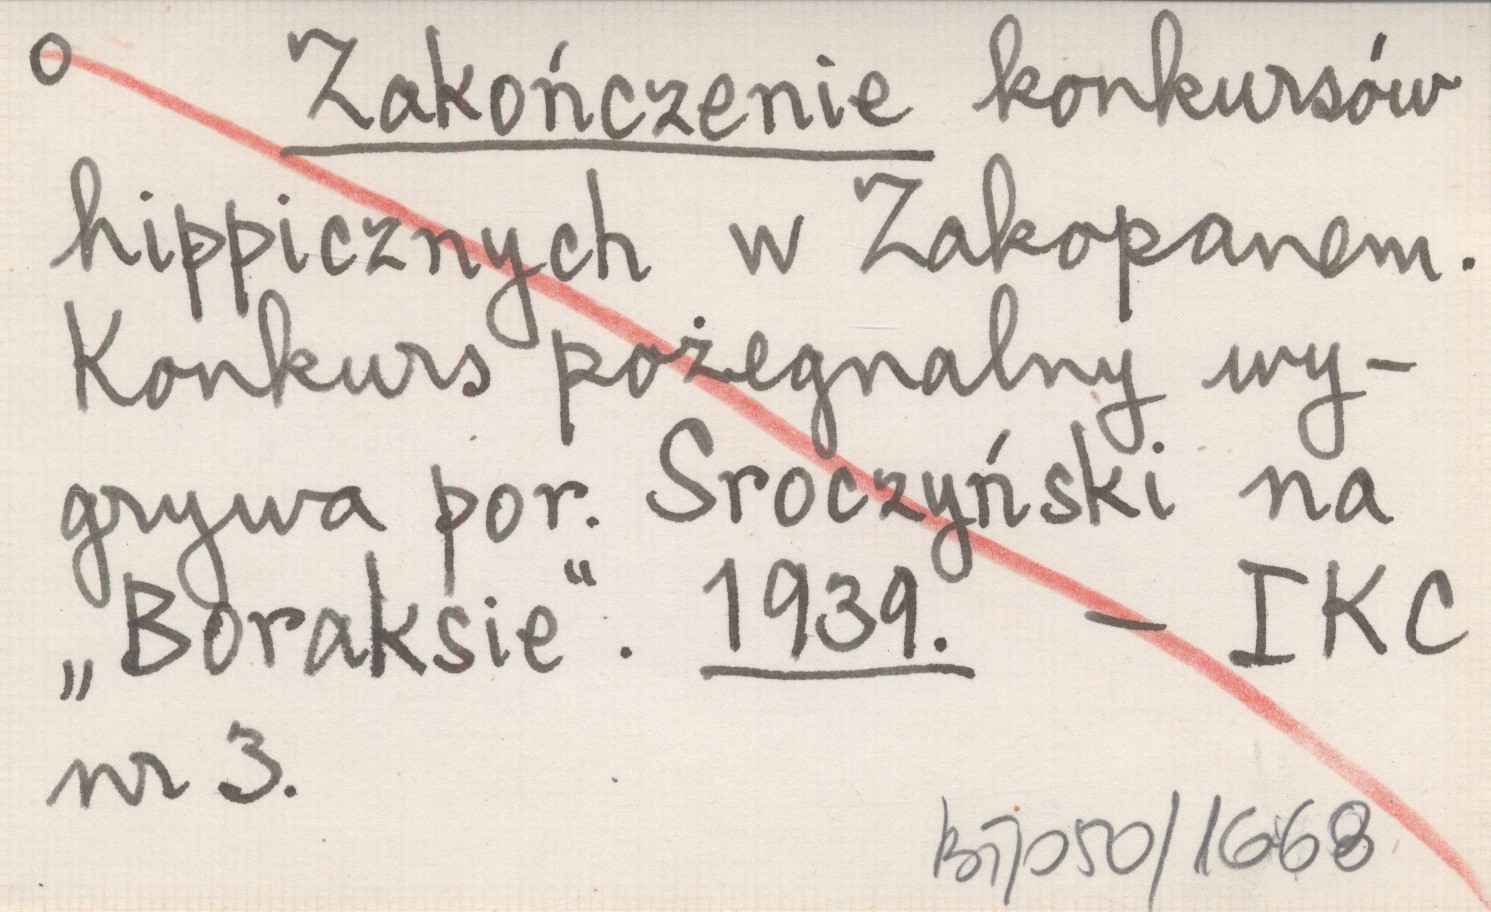 o Zakończenie konkursów
hippicznych w Zakopanem.
Konkurs pożegnalny wy-
grywa por. Sroczyński na
„Boraksie“. 1939. – IKC
nr 3.
50/1668